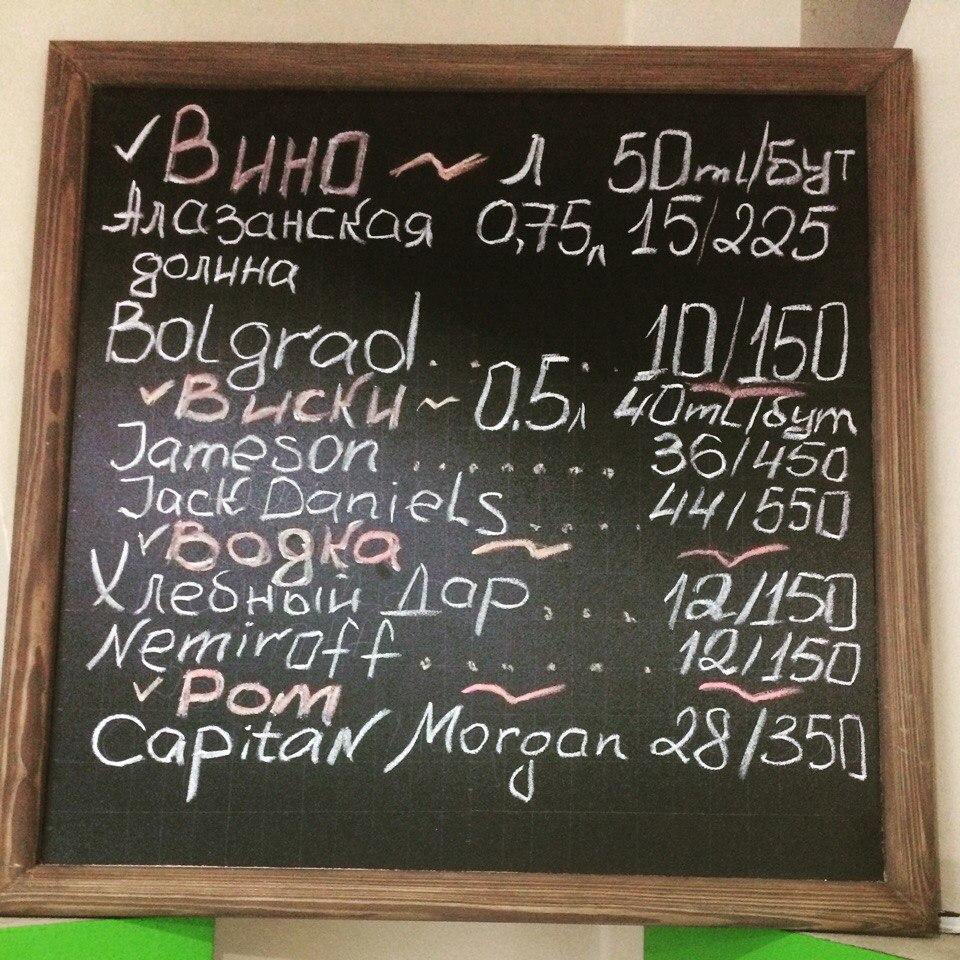 ✓ Вино ~ л 50ml/бут
Алазанская 0,75л 15/225
долина
Bolgrad. . . . . 10/150
✓ Виски ~ 0.5л 40ml/бут
Jameson ....... 36/450
Jack Daniels.... 44/550
✓ Водка
Хлебный Дар... 12/150
Nemiroff..... 12/150
✓ Ром
Capitan Morgan 28/350